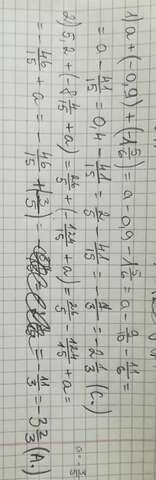 1) a + (-0,9) + (-1 5/6) = a - 0,9 - 1 5/6 = a - 9/10 - 11/6 =
= a - 41/15 = 0,4 - 41/15 = 2/5 - 41/15 = - = -2 1/3 (C.)
2) 5,2 + (-8 4/15 + a) = 26/5 + (-124/15 + a) = 26/5 - 124/15 + a =
= -46/15 + a = -46/15 + ( = -11/3 = -3 2/3 (A.)